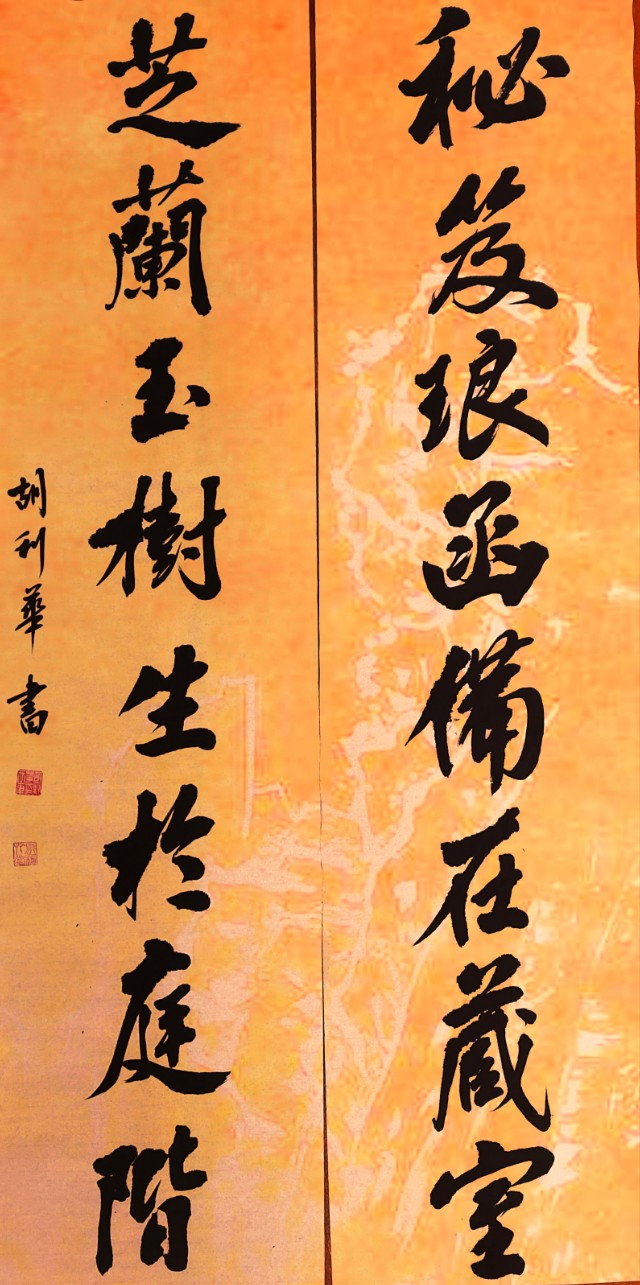 秘笈琅函備在藏室
芝蘭玉樹生於庭階
胡利華書